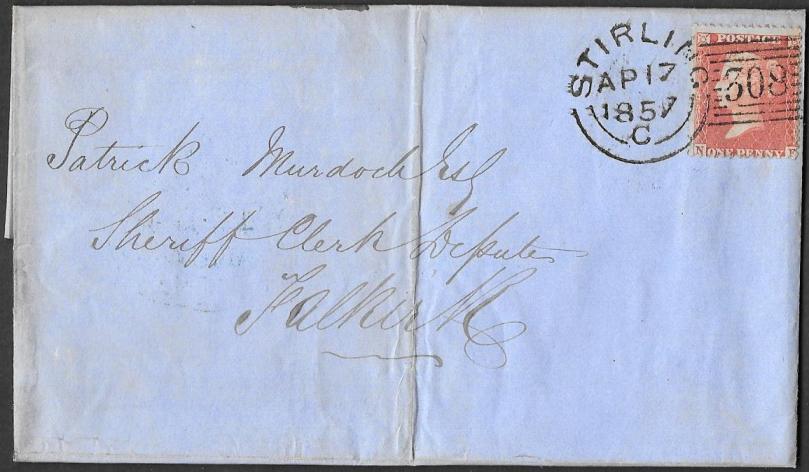 POSTAGE
308
STIRLING
AP 17
1857
C
N ONE PENNY F
Patrick Murdoch Esq
Sheriff Clerk Depute
Falkirk